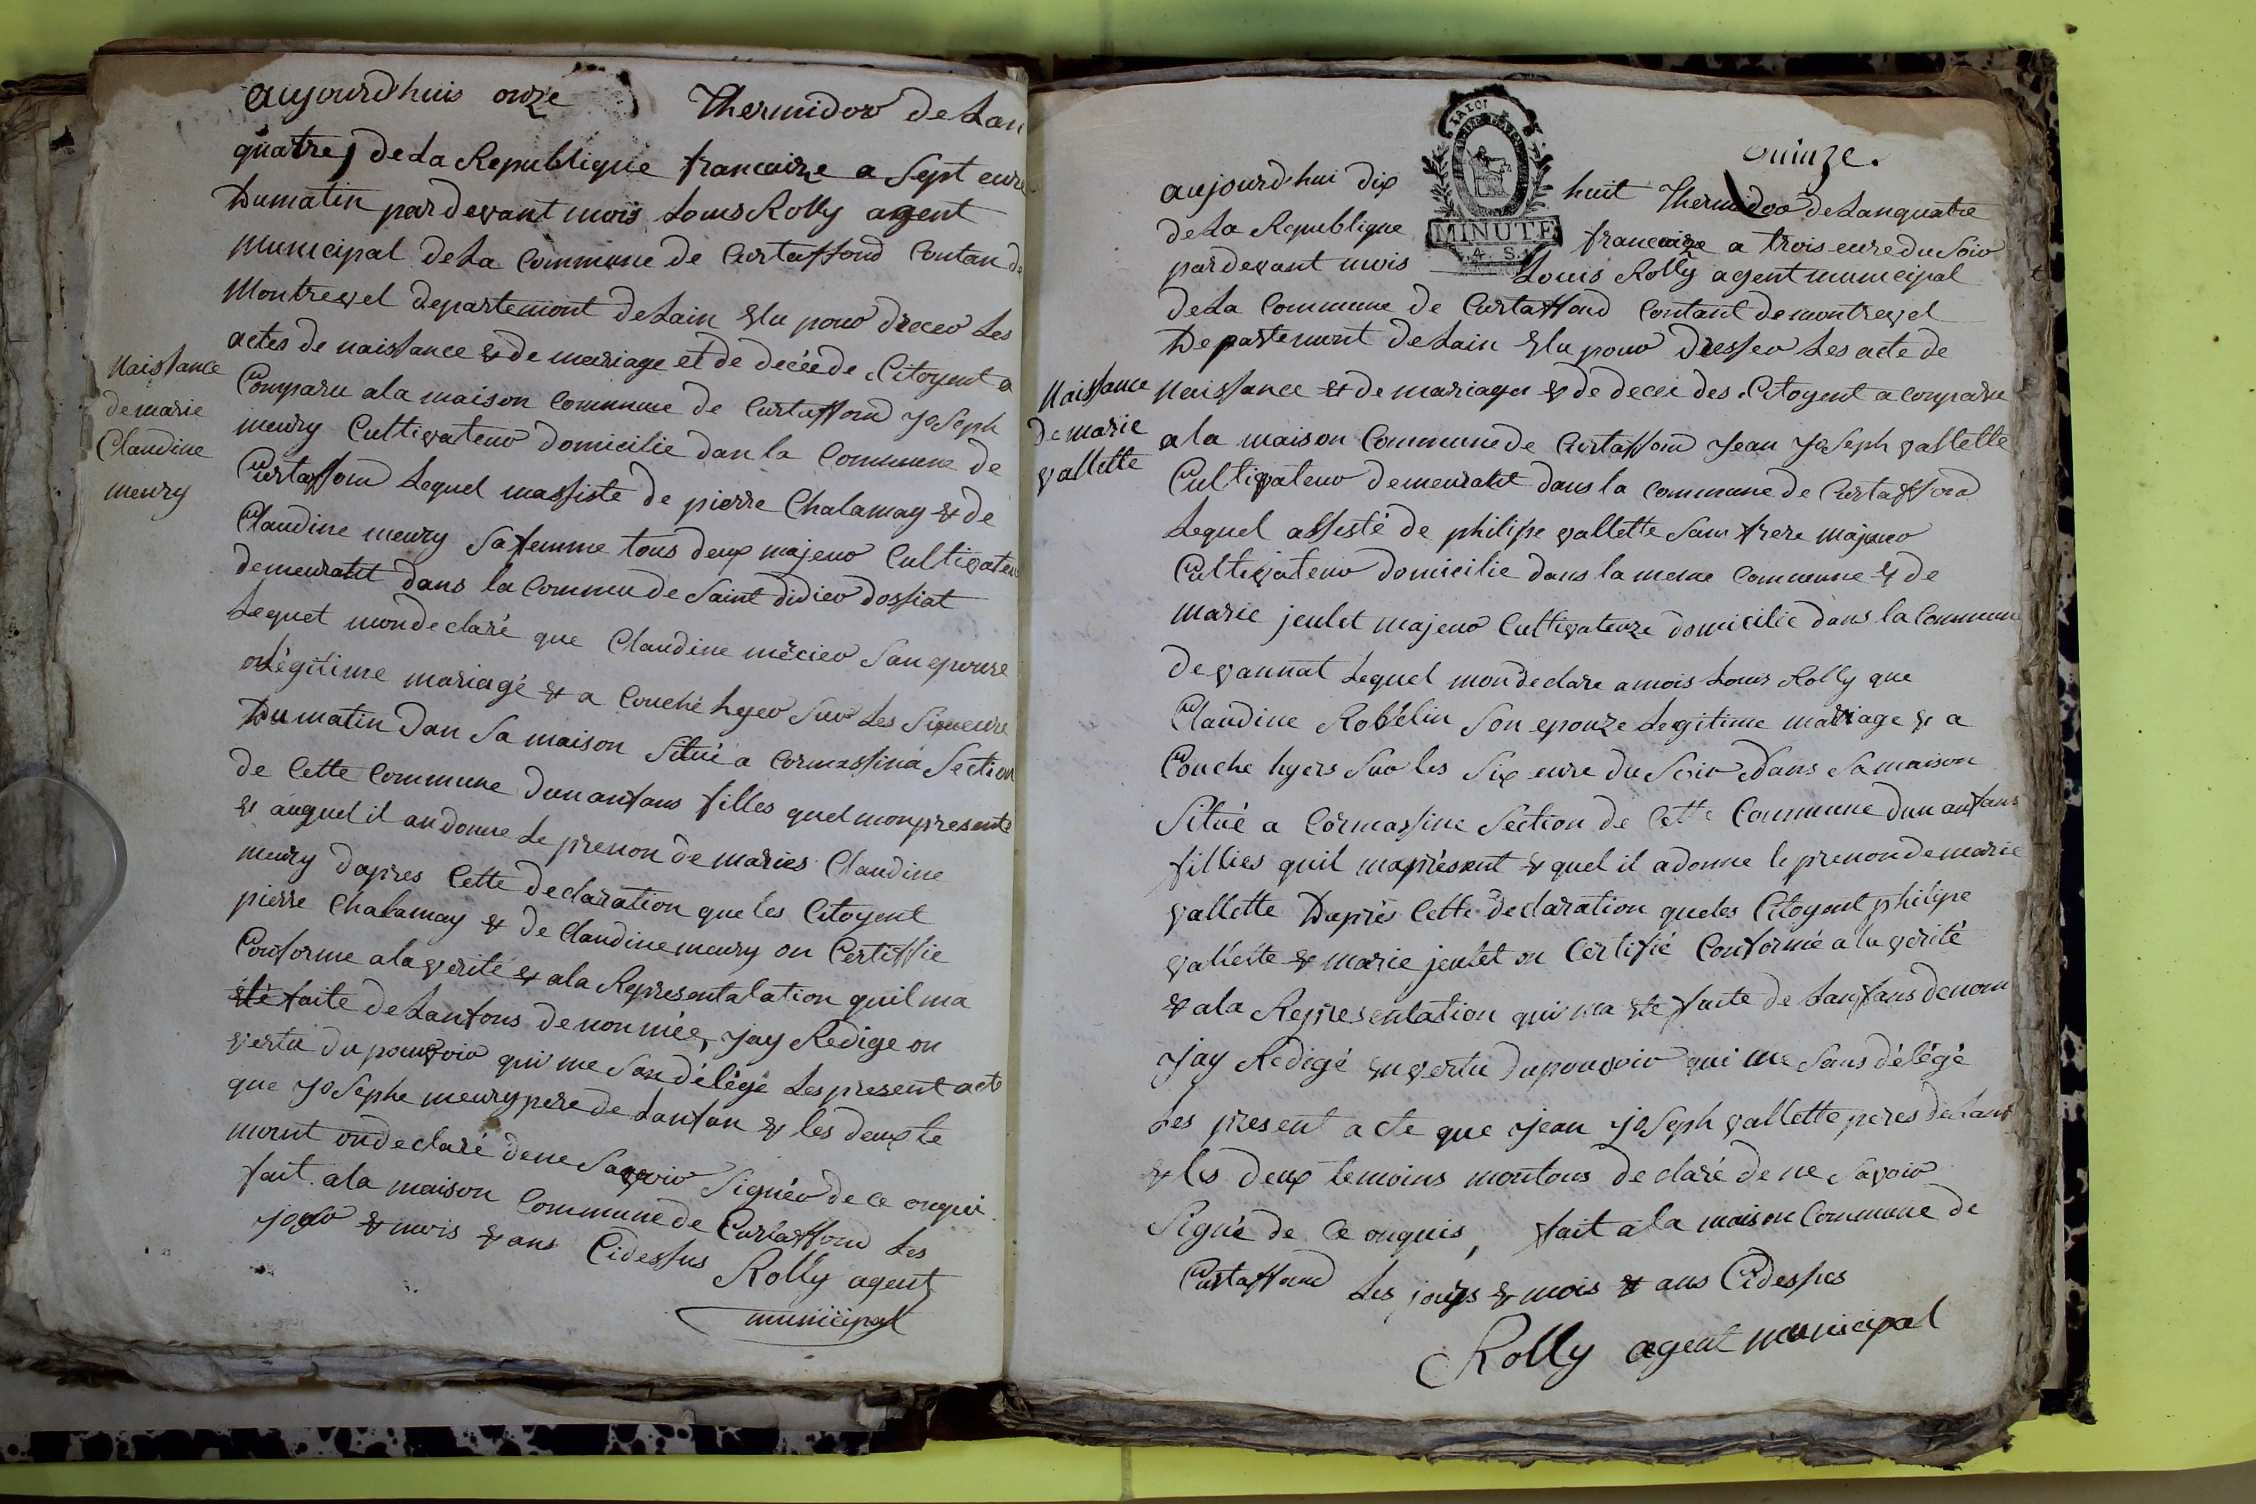 aujourdhuis onze Thermidor de Lan
quatre de la Republique francaize a Sept eure
Dumatin pardevant mois Louis Rolly agent
municipal de La Commune de Curtaffond Contan de
Montrevel departemont de Lain Elu pour drecer Les
actes de naissance & de meriage et de decéede Citoyent a
Comparu ala maison Commune de Curtaffond joSeph
meury Cultivateur domicilie dan la Commune de
Curtaffond Lequel massiste de pierre Chalamay & de
Claudine meury Safemme tous deux majeur Cultivateur
demeuratit dans la Commu de Saint didier dossiat
Lequel mondeclaré que Claudine mècier Son epouse
on Légitime mariagé & a Couché hyer Sur Les Sixeure
Du matin Dan Sa maison Situé a Cormassina Section
de Cette Commune dun anfans filles quel mon presenté
& auquel il an donne Le prenon de maries Claudine
meury dapres Cette declaration que les Citoyent
pierre Chalamay & de Claudine meury on Certiffie
Conforme ala verité & ala Representalation quil ma
été faite de Lanfons denonmée, jay Redige on
vertu du pouvoir qui me Son délégé Les present acte
que joSephe meury pere de Lanfan & les deux te
moint ondeclaré dene Savoir Signér de ce onqui
fait ala maison Commune de Curtaffond Les
jour & mois & ans Cidessus
Rolly agent
municipal
Naissance
demarie
Claudine
meury
Quinze.
LA LOI
MINUTE
4 S.
aujourdhui dix huit Thermidor de Lanquatre
de La Republique francaize a trois eure du Soir
pardevant mois Louis Rolly agent municipal
de La Commune de Curtaffond Contant de montrevel
Departemont de Lain Elu pour dresser Les acte de
Naissance & de mariages & de decei des Citoyent a comparu
ala maison Commune de Curtaffond jean joSeph vallette
Cultivateur demeuratit dans la Commune de Curtaffond
Lequel assisté de philipe vallette Son frere majeur
Cultivateur domicilie dans la meme Commune & de
marie jeulet majeur Cultivateuze domicilie dans la Commune
de vannat Lequel mondeclare a mois Louis Rolly que
Claudine Robélin Son epouze Legitime mariage & a
Couche hyers Sur les Six eure du Soir Dans Samaison
Situé a Cormassine Section de Cette Commune dun anfans
fillies quil maprésent & quel il adonne le prenon demarie
vallette Daprés Cette declaration queles Citoyent philipe
vallette & marie jeulet on Certifié Conformé ala verité
& ala Representation qui ma été faite de Lanfans denom
jay Redigé en vertu du pouvoir qui me Sans délégé
Les present acte que jean joSeph vallette peres de Lanf
& les deux temoins montous declaré de ne Savoir
Signé de Ce onquis, fait ala maison Commune de
Curtaffond Les jours & mois & ans Cidessus
Rolly agent municipal
Naissance
demarie
vallette